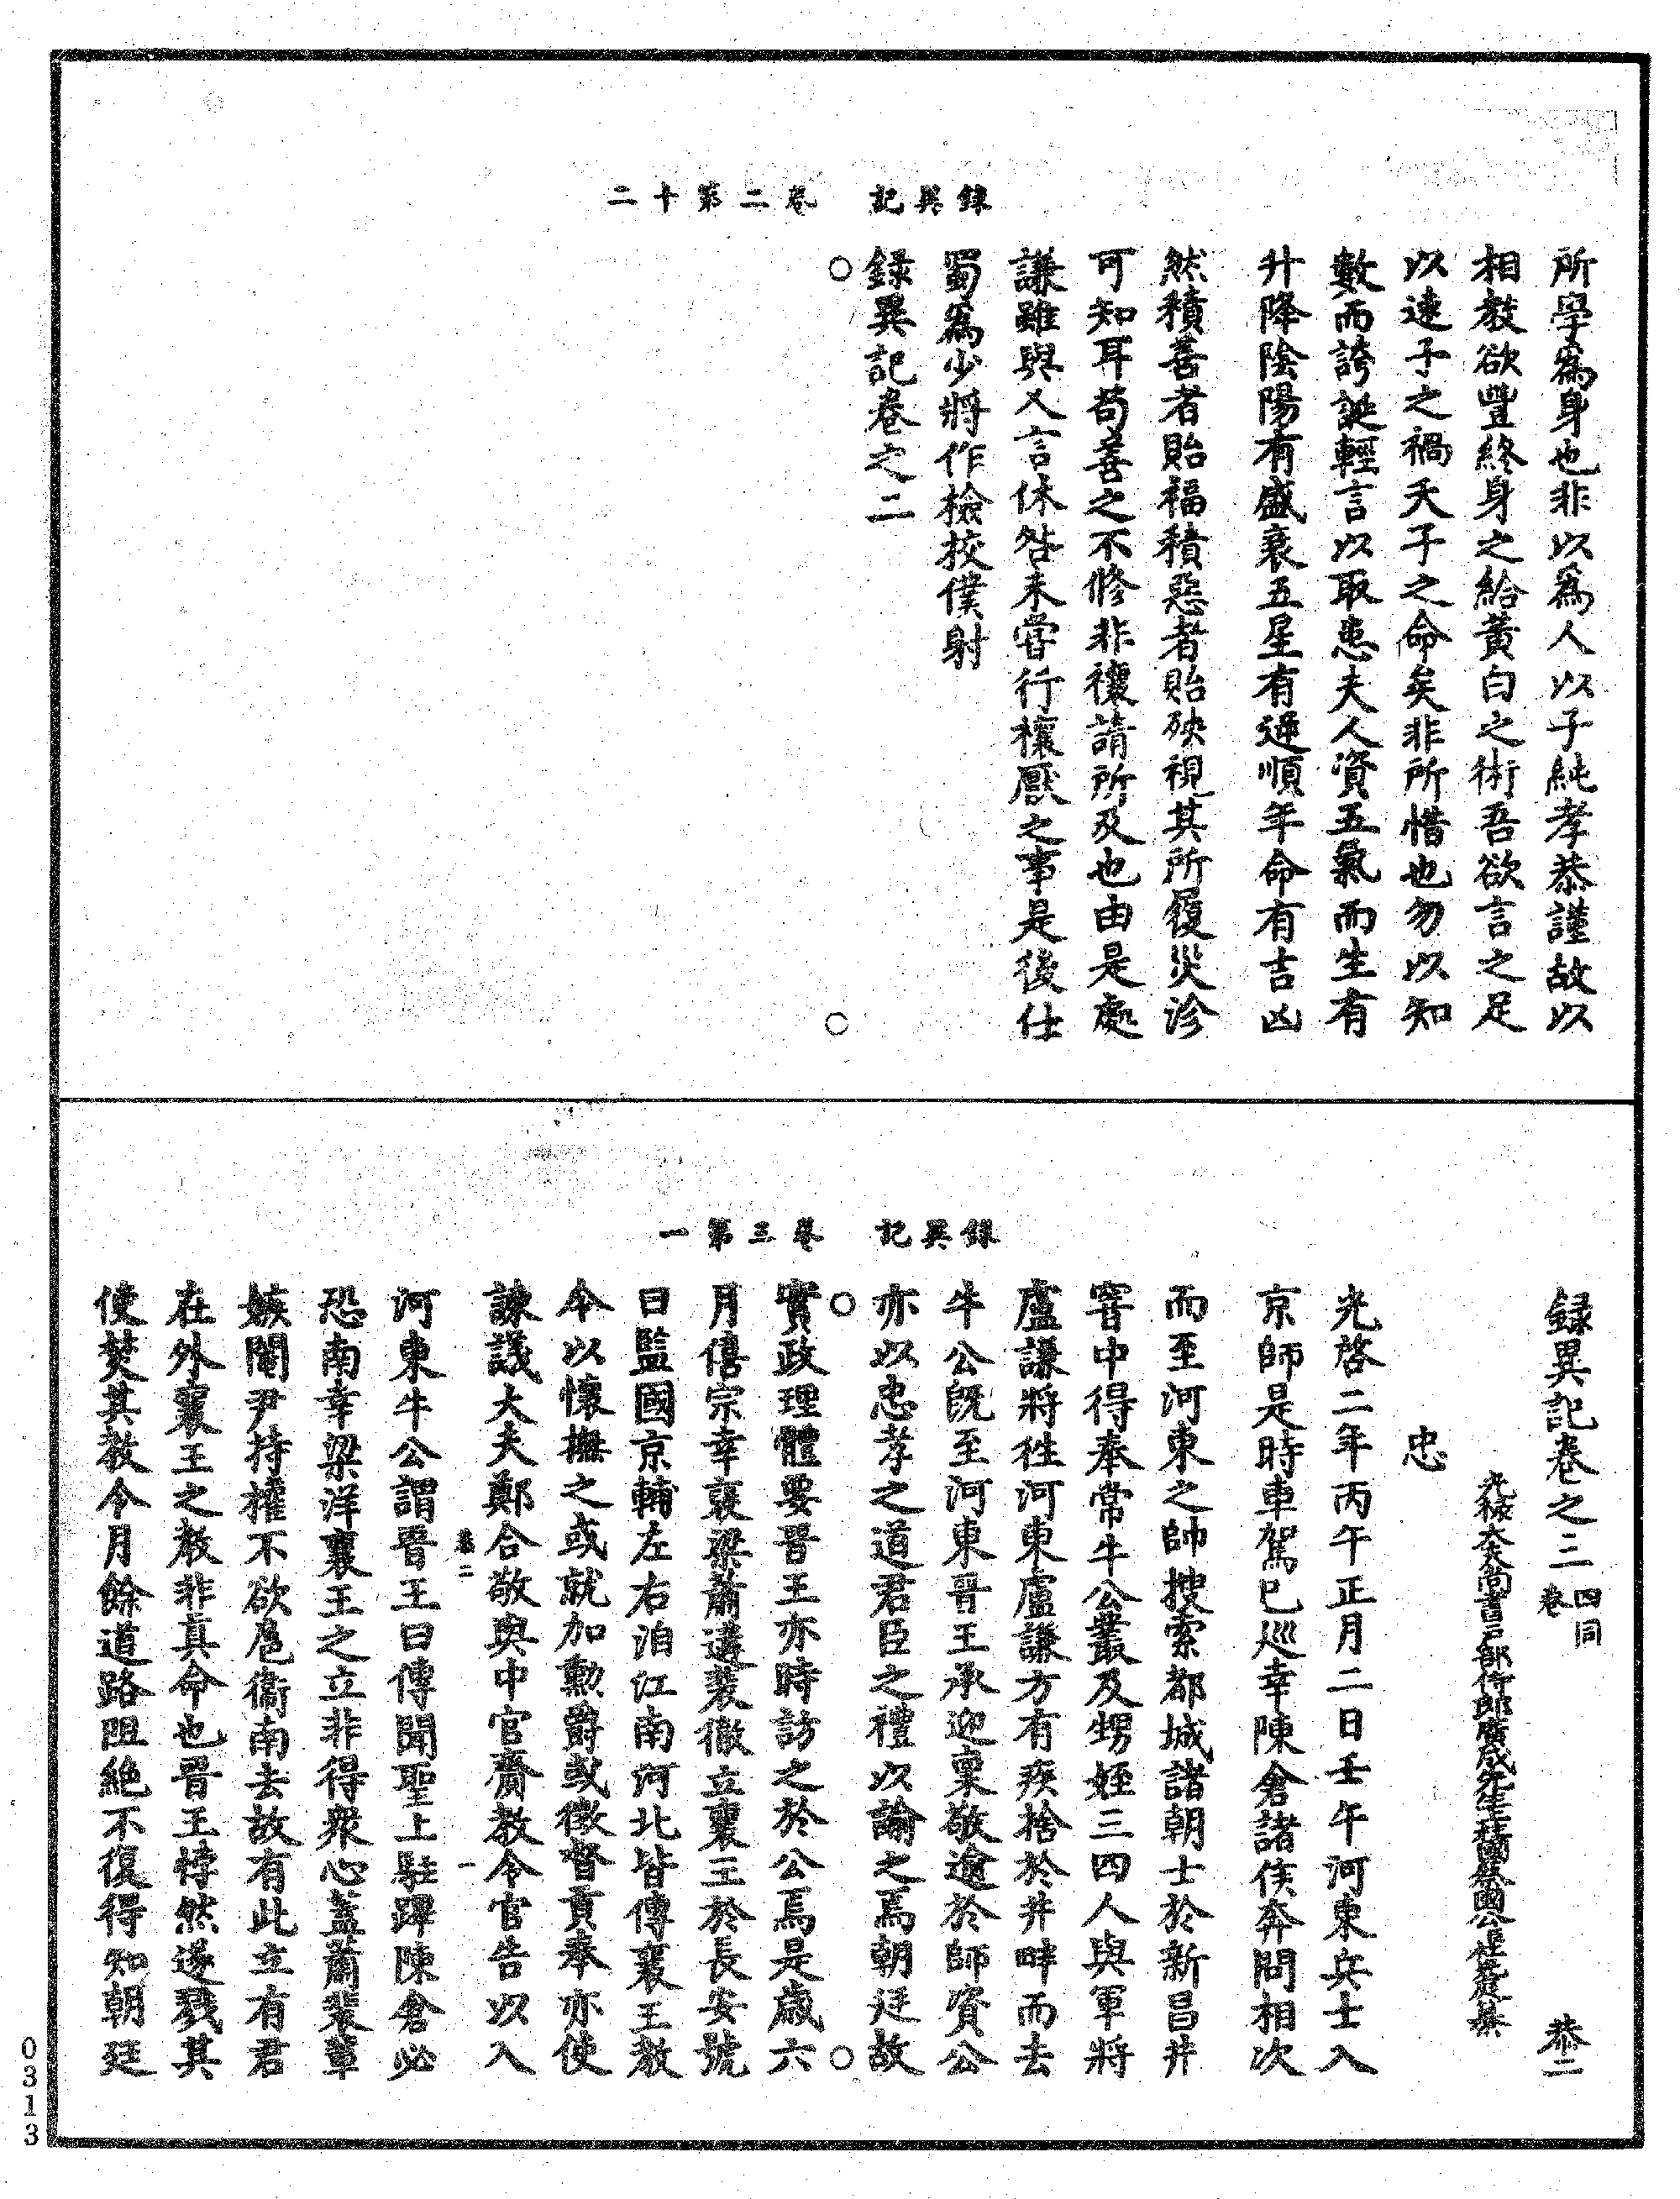 錄異記　卷二第十二
所學為身也非以爲人以子純孝恭謹故以
相教欲豐終身之給黃白之術吾欲言之足
以速子之禍夭子之命矣非所惜也勿以知
數而誇誕輕言以取患夫人資五氣而生有
升降陰陽有盛衰五星有逆順年命有吉凶
然積善者貽福積惡者貽殃視其所履災沴
可知耳苟善之不修非禳請所及也由是處
謙雖與人言休咎未嘗行禳厭之事是後仕
蜀爲少將作檢挍僕射
録異記卷之二
錄異記　卷三第一
録異記卷之三 四同卷 恭二
光祿大夫尚書戶部侍郎廣成先生上柱國蔡國公臣杜光庭纂
忠
光啓二年丙午正月二日壬午河東兵士入
京師是時車駕已廵幸陳倉諸侯奔問相次
而至河東之帥搜索都城諸朝士於新昌井
窖中得奉常牛公叢及甥姪三四人與軍將
盧謙將往河東盧謙方有疾捨於井畔而去
牛公既至河東晉王承迎稟敬逾於師資公
亦以忠孝之道君臣之禮以諭之焉朝廷故
實政理體要晉王亦時訪之於公焉是歲六
月僖宗幸襃梁蕭遘裴徹立襄王於長安號
曰監國京輔左右洎江南河北皆傳襄王教
令以懷撫之或就加勳爵或徵督貢奉亦使
諫議大夫鄭合敬與中官齎教令官告以入
恭二　一
河東牛公謂晉王曰傳聞聖上駐蹕陳倉必
恐南幸梁洋襄王之立非得衆心蓋蕭裴輩
嫉閹尹持權不欲扈衞南去故有此立有君
在外襄王之教非真命也晉王悖然遂戮其
使焚其教令月餘道路阻絕不復得知朝廷
0313